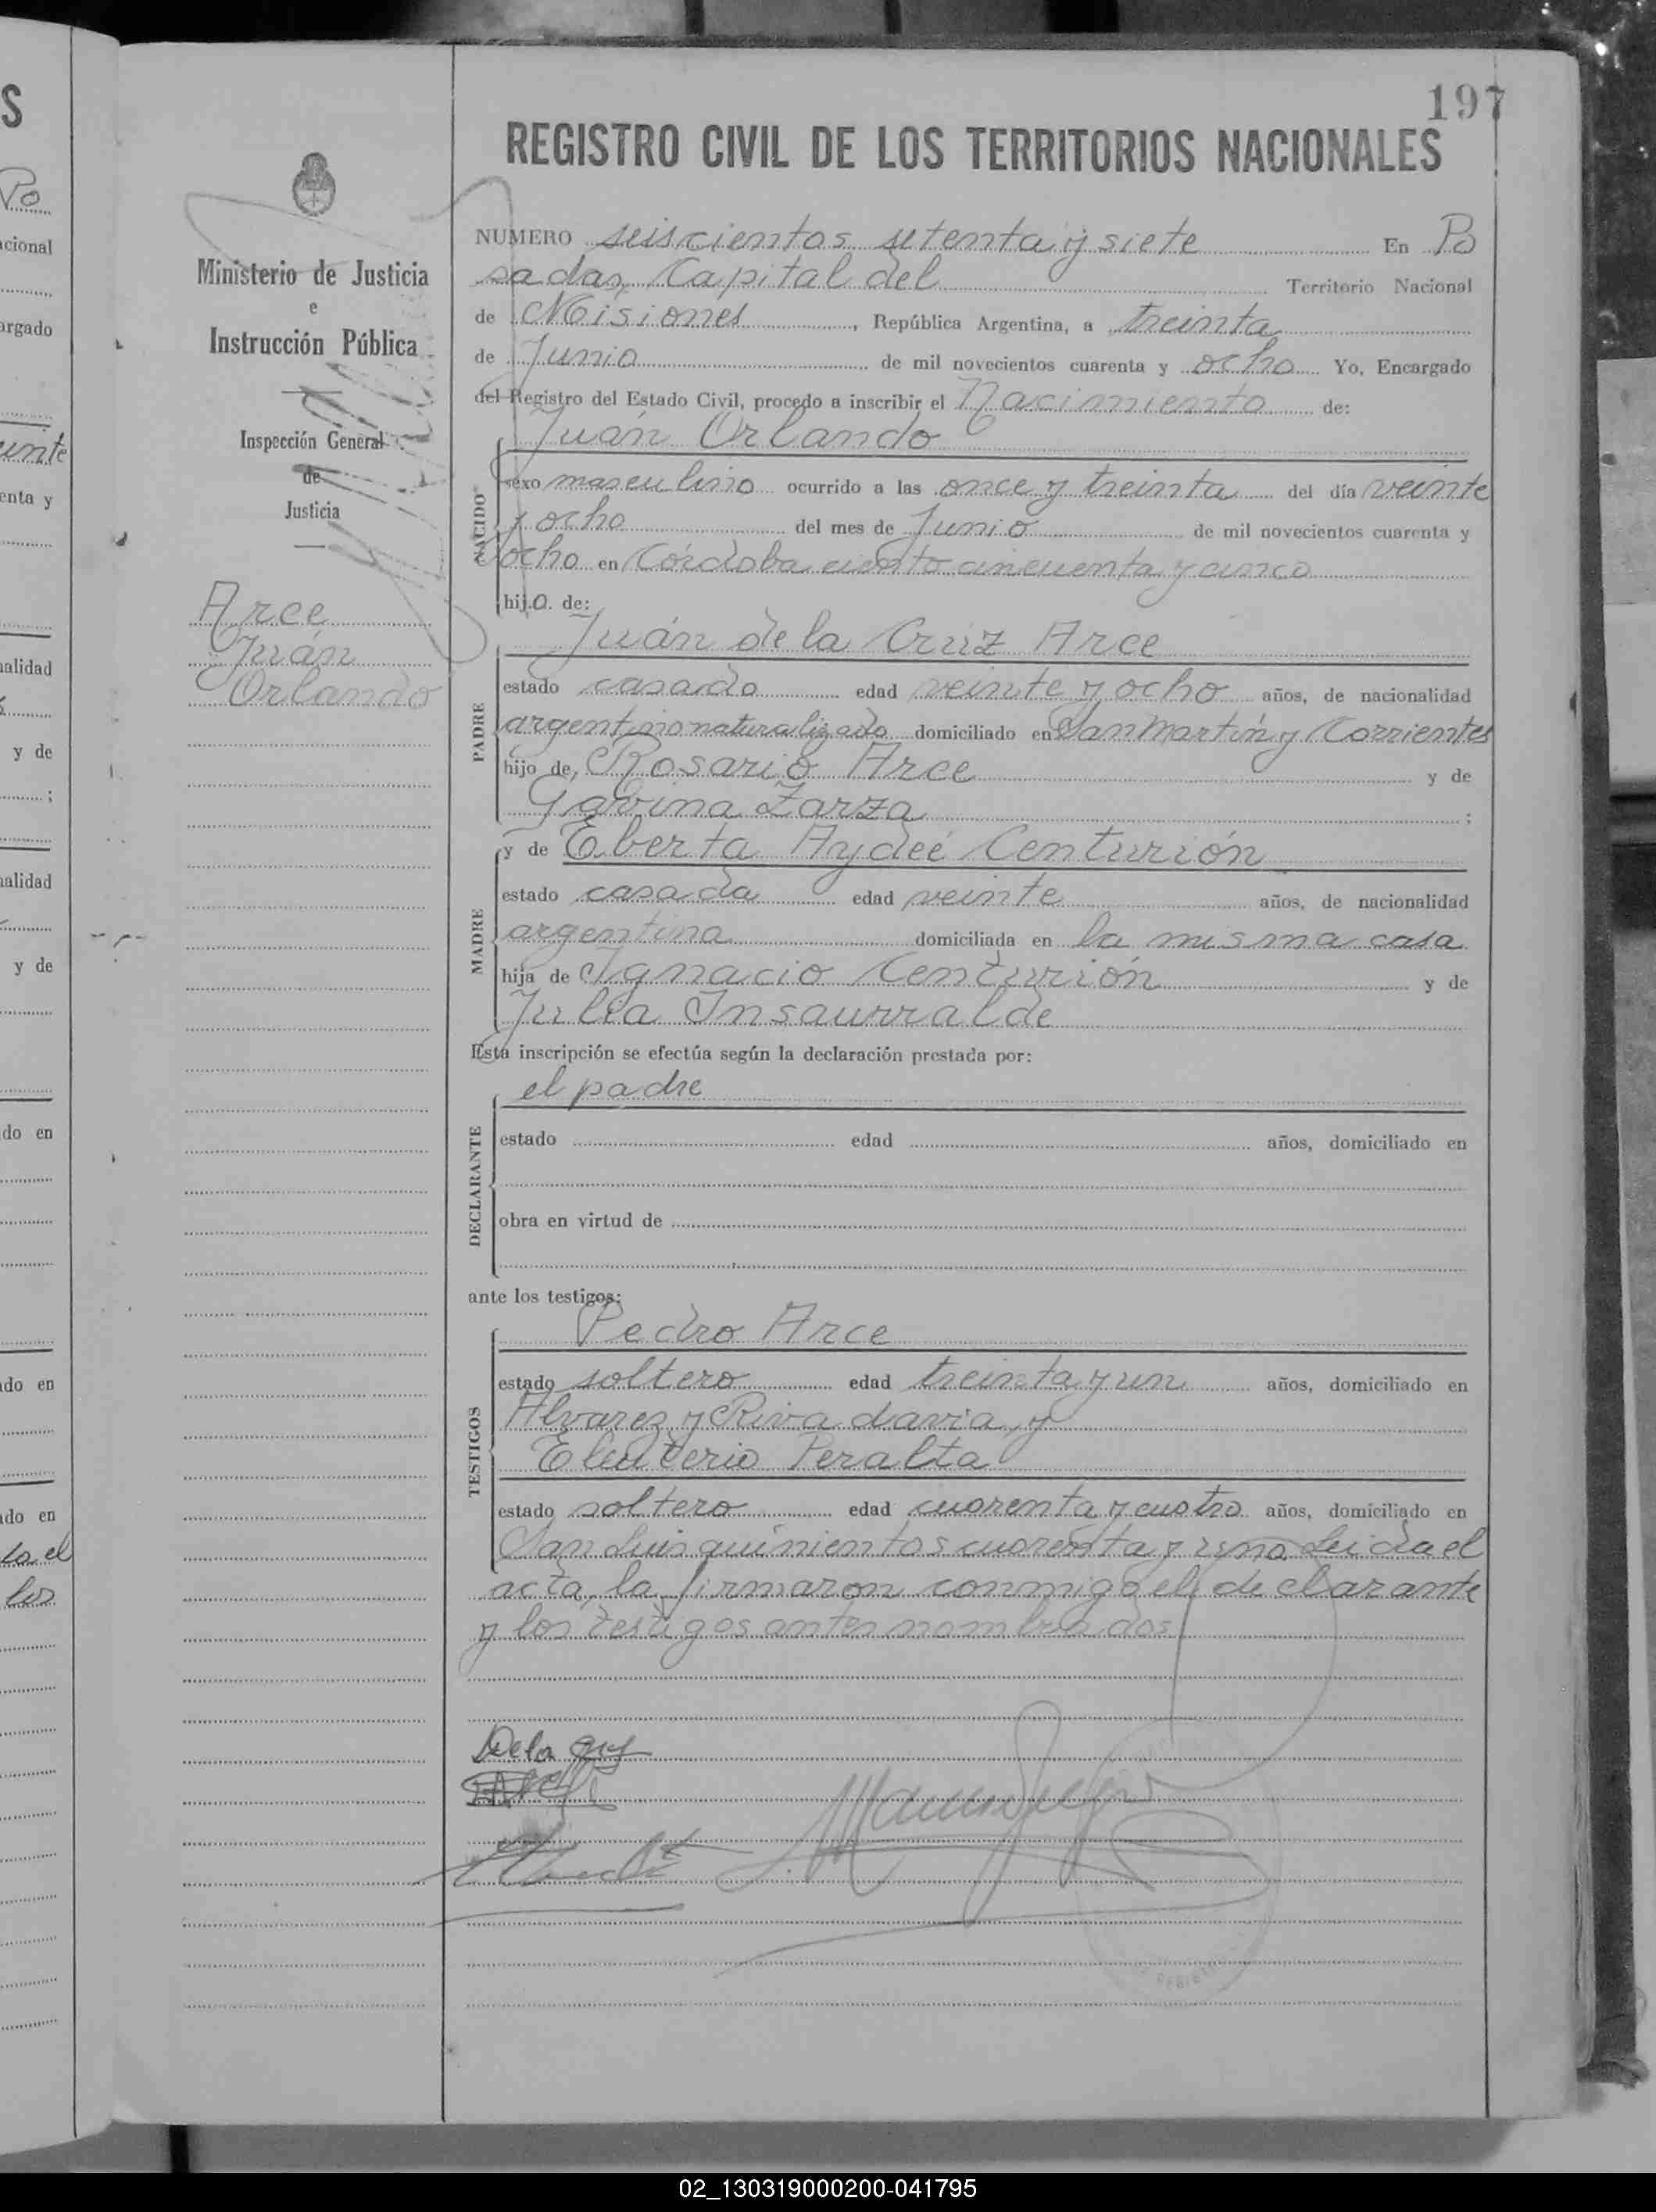 197
REGISTRO CIVIL DE LOS TERRITORIOS NACIONALES
Ministerio de Justicia
e
Instrucción Pública
Inspección General
de
Justicia
Arce
Juán
Orlando
NUMERO seiscientos setenta y siete En Po
sadas, Capital del Territorio Nacional
de Misiones, República Argentina, a treinta
de Junio de mil novecientos cuarenta y ocho Yo, Encargado
del Registro del Estado Civil, procedo a inscribir el Nacimiento de:
Juán Orlando
NACIDO
sexo masculino ocurrido a las once y treinta del día veinte
y ocho del mes de Junio de mil novecientos cuarenta y
ocho en Córdoba ciento cincuenta y cinco
hijo. de:
Juán de la Cruz Arce
PADRE
estado casado edad veinte y ocho años, de nacionalidad
argentino naturalizado domiciliado en San Martín y Corrientes
hijo de Rosario Arce y de
Gavina Zarza ;
y de Eberta Aydeé Centurión
MADRE
estado casada edad veinte años, de nacionalidad
argentina domiciliada en la misma casa
hija de Ignacio Centurión y de
Julia Insaurralde
Esta inscripción se efectúa según la declaración prestada por:
el padre
DECLARANTE
estado edad años, domiciliado en
obra en virtud de
ante los testigos:
Pedro Arce
TESTIGOS
estado soltero edad treinta y un años, domiciliado en
Alvarez y Rivadavia y
Eleuterio Peralta
estado soltero edad cuarenta y cuatro años, domiciliado en
San Luis quinientos cuarenta y uno Leida el
acta, la firmaron conmigo el declarante
y los testigos antes nombrados
De la Cruz
Arce
S
Po
acional
argado
einte
enta y
nalidad
y de
;
nalidad
y de
do en
do en
do en
la el
los
02_130319000200-041795